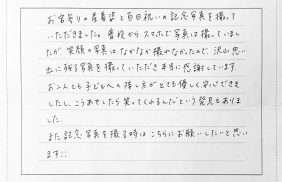 お宮参りの産着姿と百日祝いの記念写真を撮って
いただきました。普段からスマホで写真は撮っていまし
たが、笑顔の写真はなかなか撮れなかったので、沢山思い
出に残る写真を撮っていただき本当に感謝しています。
お二人とも子どもへの接し方がとても優しく安心できま
したし、こうあやしたら笑ってくれるんだという発見もありま
した。
また記念写真を撮る時はこちらにお願いしたいと思い
ます!!